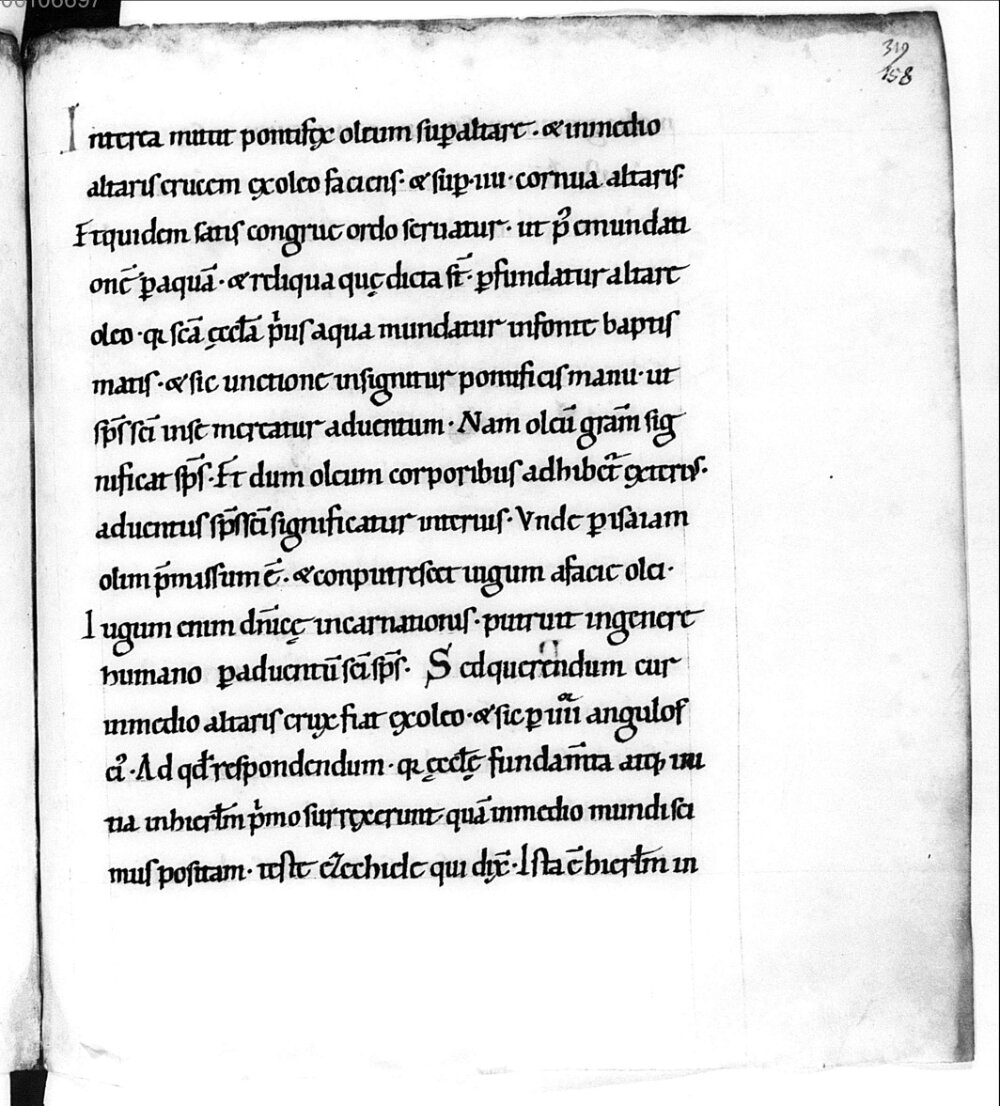 319
158
Interea mittit pontifex oleum sup altare · & inmedio
altaris crucem ex oleo faciens · & sup · IIII · cornua altaris
Et quidem satis congrue ordo seruatur · ut p̄ emundati
onē p aquā · & reliqua quę dicta st̄ · pfundatur altare
oleo · q scā ęccl̄a p̓us aqua mundatur infonte baptis
matis · & sic unctione insignitur pontificis manu · ut
sp̄s sc̄i inse mereatur aduentum · Nam oleū grām sig
nificat sp̄s · Et dum oleum corporibus adhibet᷑ exterius ·
aduentus sp̄s sc̄i significatur interius · Vnde p isaiam
olim p̄missum ē · & conputrescet iugum afacie olei ·
Iugum enim dn̄icę incarnationis · putruit ingenere
humano p aduentū sc̄i sp̄s · Sed querendum cur
inmedio altaris crux fiat ex oleo · & sic p IIIIᵒʳ angulos
ei᷒ · Ad qd̄ respondendum · q ęccl̄ę fundam̄ta atq; ui
ua inhierl̄m p̓mo surrexerunt · quā inmedio mundi sci
mus positam · teste ezechiele qui dix̄ · Ista ē hierl̄m in